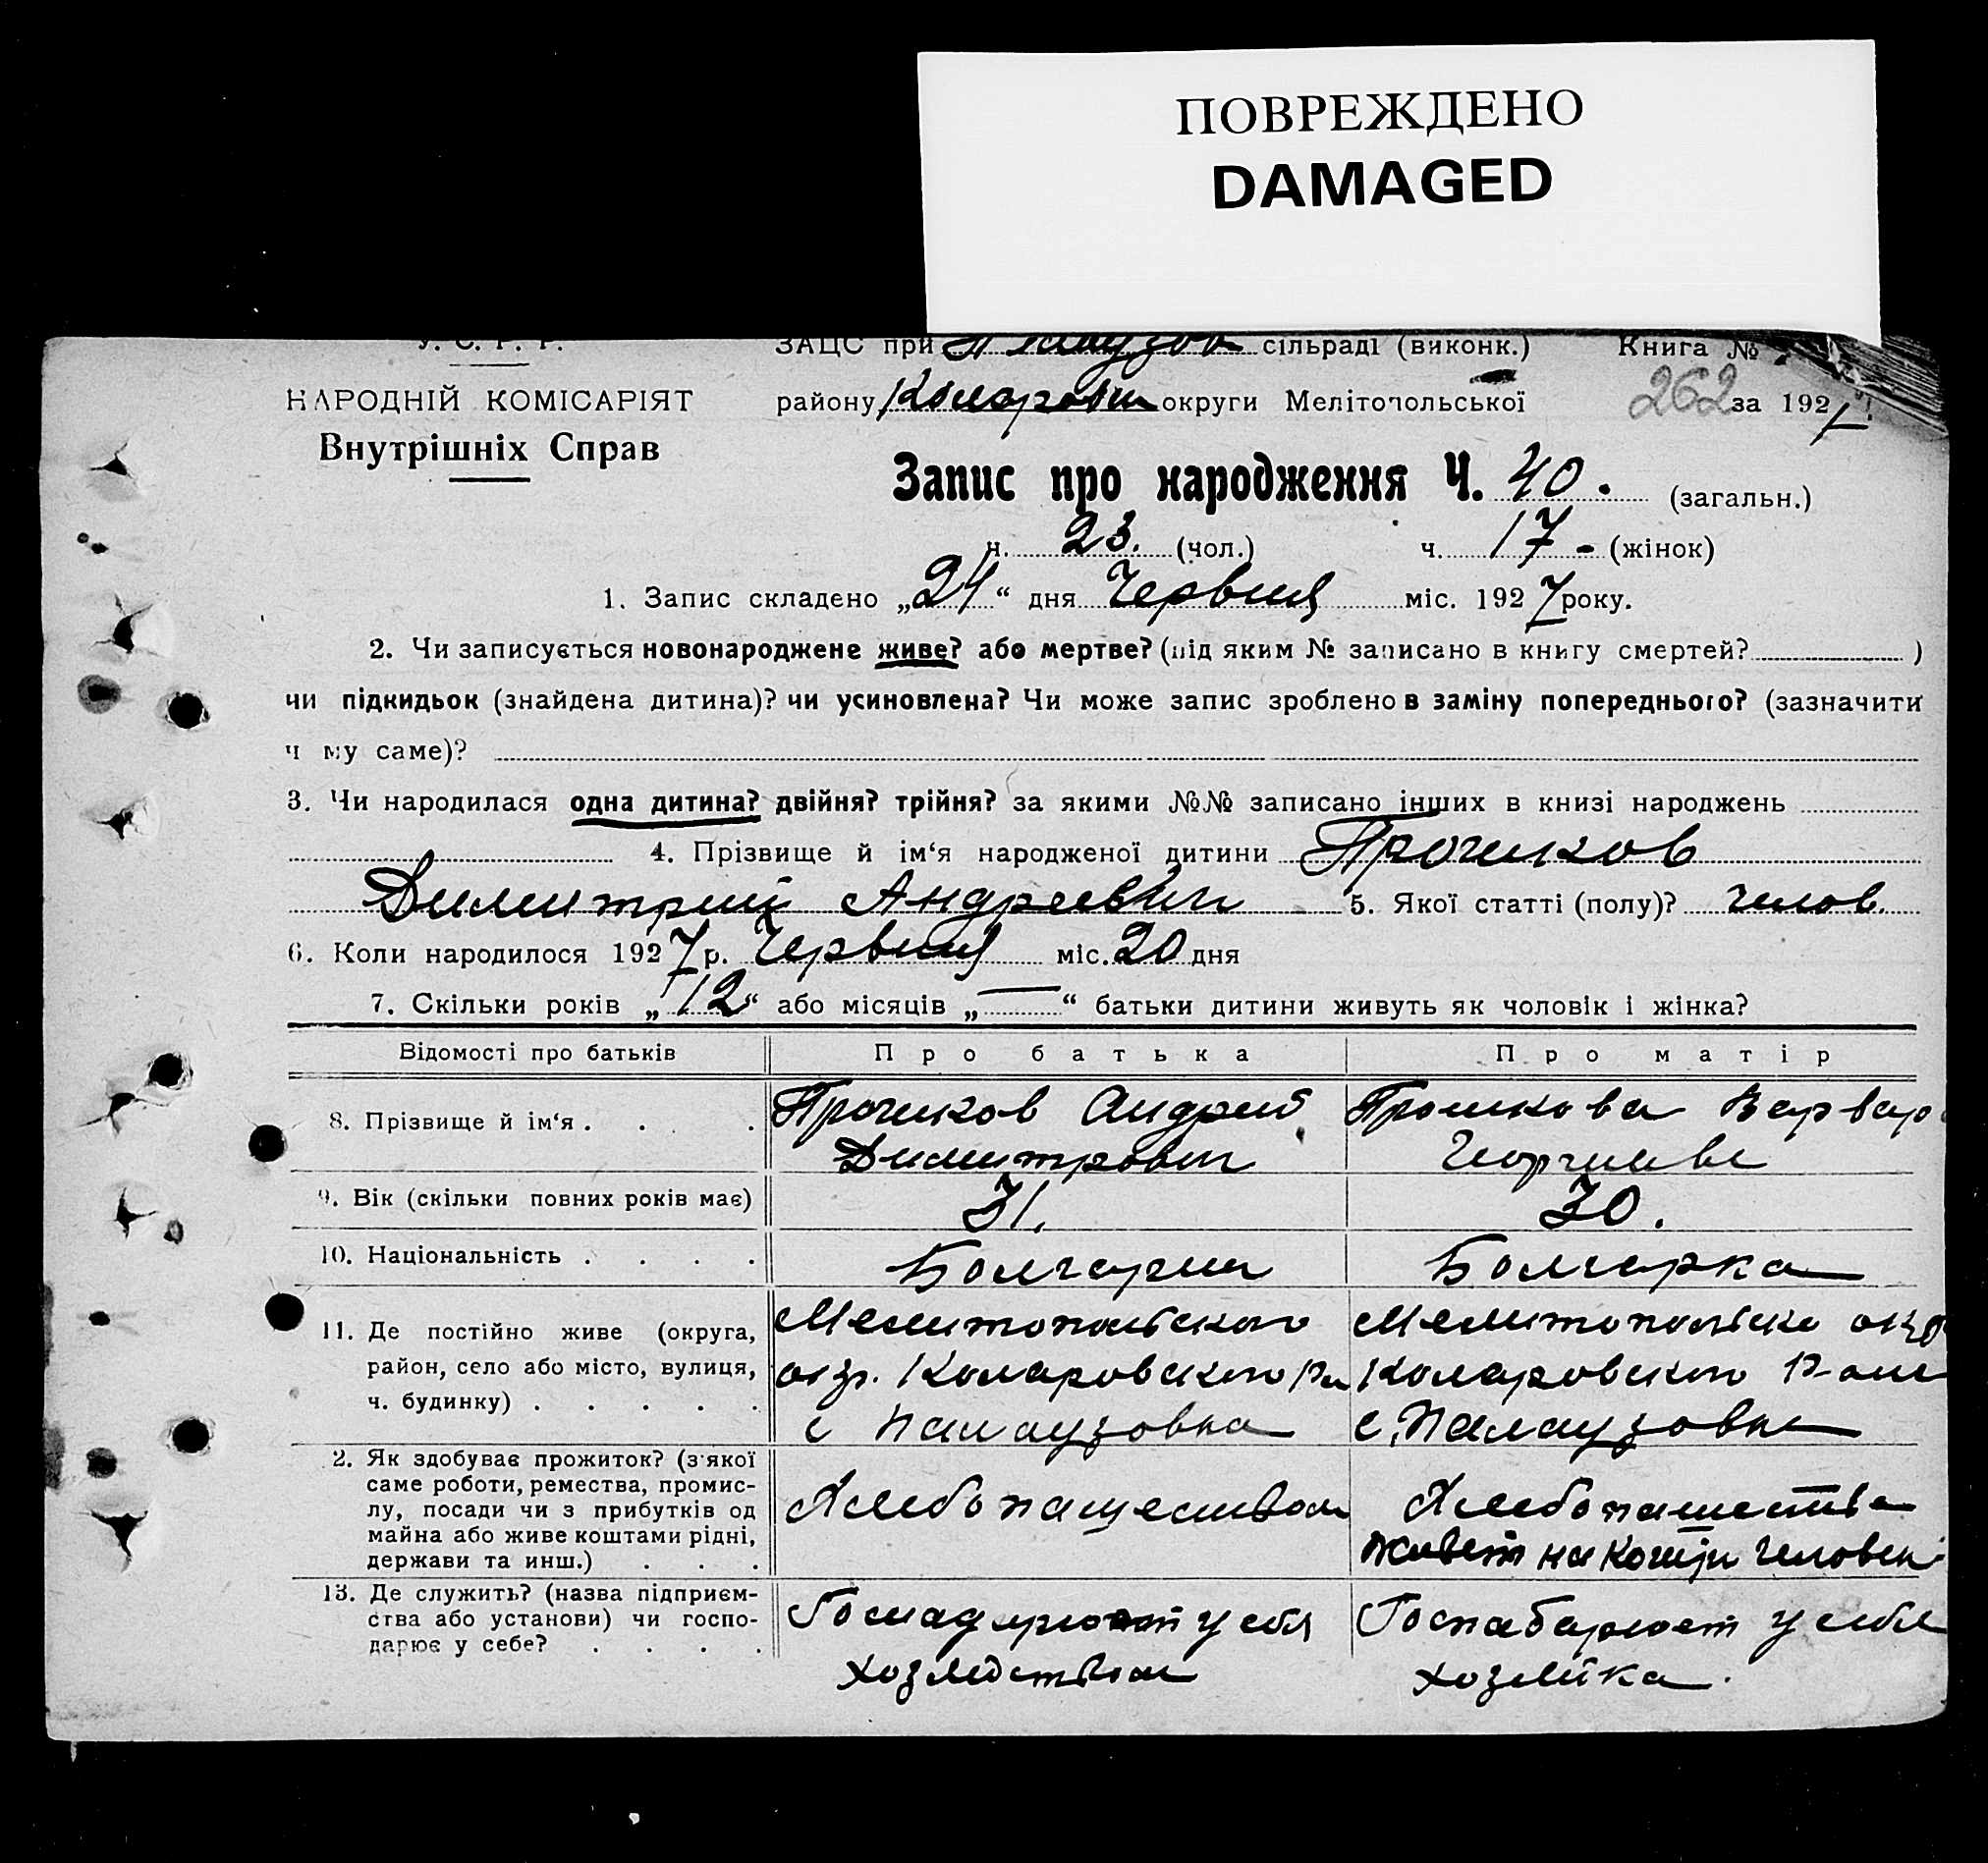 ПОВРЕЖДЕНО
DAMAGED
У. С. Р. Р.
ЗАЦС при сільраді (виконк.) Книга №
НАРОДНІЙ КОМІСАРІЯТ
району Коларовск округи Мелітопольської 262 за 1927
Внутрішніх Справ
Запис про народження Ч. 40. (загальн.)
ч. 23. (чол.) ч. 17 - (жінок)
1. Запис складено „24“ дня Червня міс. 1927 року.
2. Чи записується новонароджене живе? або мертве? (під яким № записано в книгу смертей? )
чи підкидьок (знайдена дитина)? чи усиновлена? Чи може запис зроблено в заміну попереднього? (зазначити
ч му саме)?
3. Чи народилася одна дитина? двійня? трійня? за якими №№ записано інших в книзі народжень
4. Прізвище й ім‘я народженої дитини Прочиков
Димитрий Андреевич 5. Якої статті (полу)? челов.
6. Коли народилося 1927 р. Червня міс. 20 дня
7. Скільки років „12“ або місяців „—“ батьки дитини живуть як чоловік і жінка?
Відомості про батьків Про батька Про матір
8. Прізвище й ім‘я . . . . Прочиков Андрей
Димитрович
Варвар
9. Вік (скільки повних років має) 31. 30.
10. Національність . . . . Болгарин Болгарка
11. Де постійно живе (округа,
район, село або місто, вулиця,
ч. будинку) . . . . .
Мелитопольского
окр. Коларовского Р-н
с Палаузовка
Мелитопольско окр
Коларовского Р-она
с. Палаузовка
2. Як здобуває прожиток? (з'якої
саме роботи, ремества, промис-
лу, посади чи з прибутків од
майна або живе коштами рідні,
держави та инш.) . . .
Хлебопашеством
Хлебопашества
живет на
13. Де служить? (назва підприєм-
ства або установи) чи госпо-
дарює у себе? . . . .
у себя
хозяйством
у себя
хозяйка.